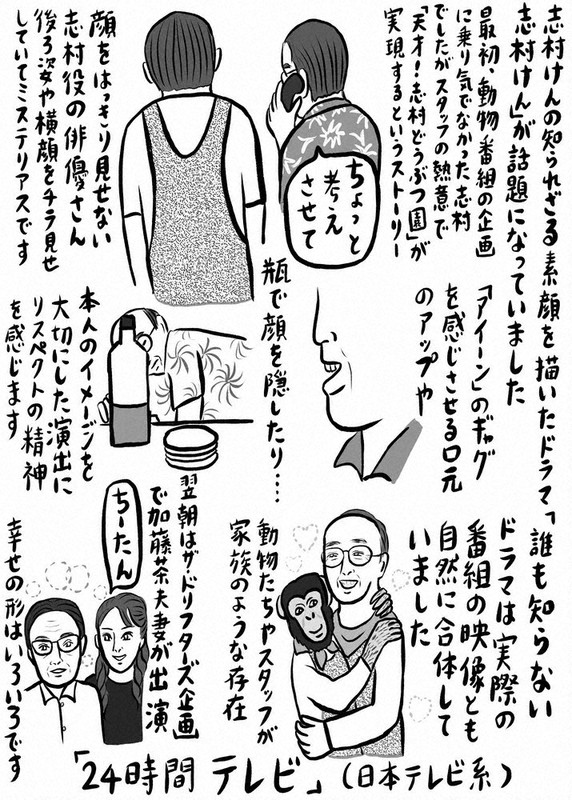 志村けんの知られざる素顔を描いたドラマ「誰も知らない
志村けん」が話題になっていました
最初、動物番組の企画
に乗り気でなかった志村
でしたがスタッフの熱意で
「天才！志村どうぶつ園」が
実現するというストーリー
ちょっと
考え
させて
顔をはっきり見せない
志村役の俳優さん
後ろ姿や横顔をチラ見せ
していてミステリアスです
「アイーン」のギャグ
を感じさせる口元
のアップや
瓶で顔を隠したり……
本人のイメージを
大切にした演出に
リスペクトの精神
を感じます
ドラマは実際の
番組の映像とも
自然に合体して
いました
動物たちやスタッフが
家族のような存在
翌朝はザ・ドリフターズ企画
で加藤茶夫妻が出演
ちーたん
幸せの形はいろいろです
「24時間テレビ」（日本テレビ系）